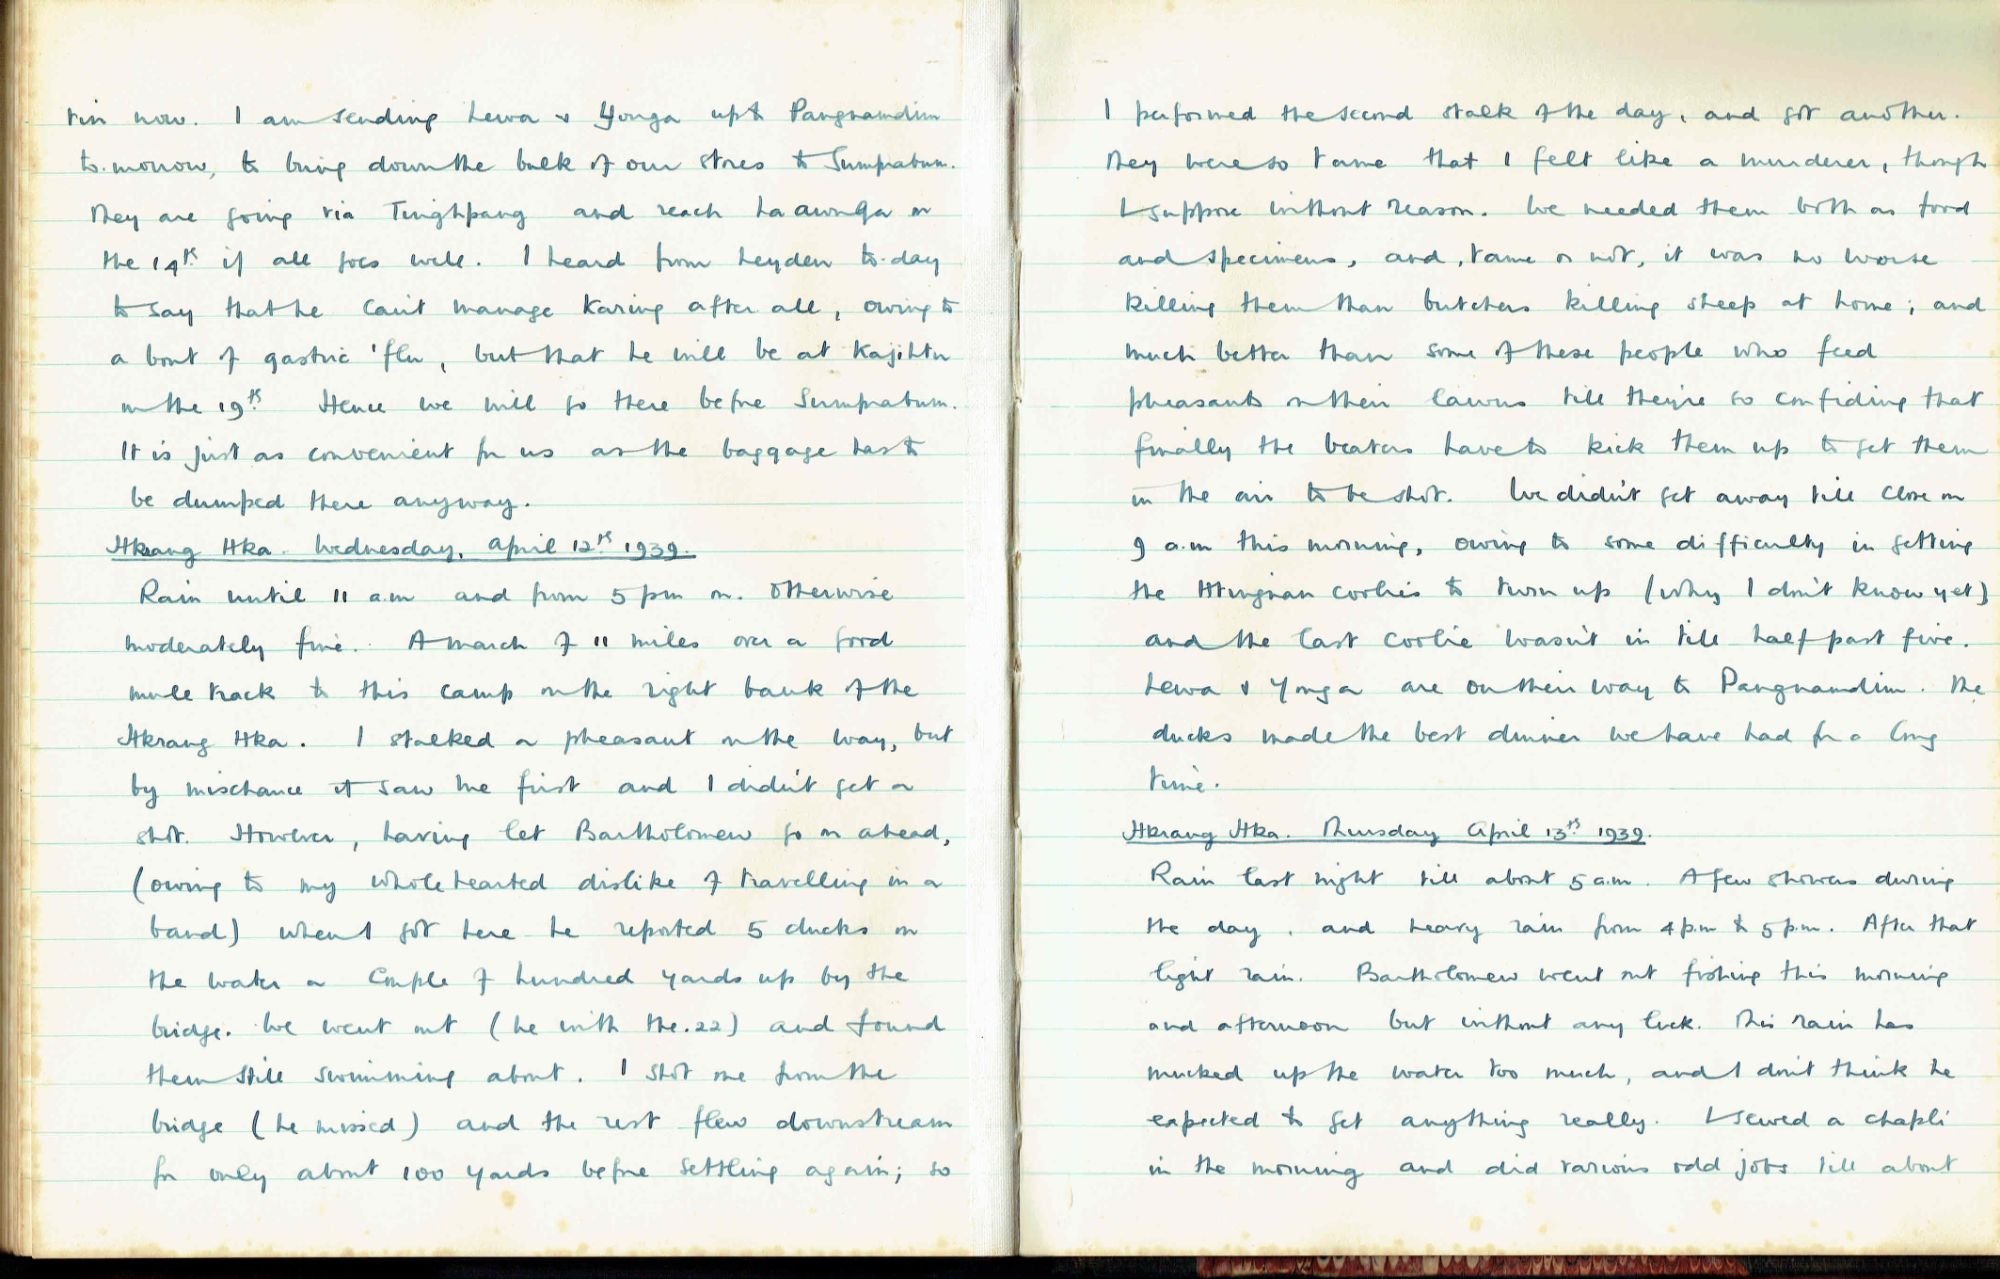 tin now. I am sending Lewa & Yonga up to Pangnamdim
to-morrow, to bring down the bulk of our stores to Sumprabum.
They are going via Tinghpang and reach on
the 19th if all goes well. I heard from Leyden to-day
to say that he can't manage Karing after all, owing to
a bout of gastric 'flu, but that he will be at Kajihtu
on the 19th. Hence we will go there before Sumprabum.
It is just as convenient for us as the baggage has to
be dumped there anyway.
Hkrang Hka. Wednesday, April 12th 1939.
Rain until 11 a.m and from 5 pm on. Otherwise
moderately fine. A march of 11 miles over a good
mule track to this camp on the right bank of the
Hkrang Hka. I stalked a pheasant on the way, but
by mischance it saw me first and I didn't get a
shot. However, having let Bartholomew go on ahead,
(owing to my wholehearted dislike of travelling in a
band) when I got here he reported 5 ducks on
the water a couple of hundred yards up by the
bridge. We went out (he with the .22) and found
them still swimming about. I shot one from the
bridge (he missed) and the rest flew downstream
for only about 100 yards before settling again; so
I performed the second stalk of the day, and got another.
They were so tame that I felt like a murderer, though
I suppose without reason. We needed them both as food
and specimens, and, tame or not, it was no worse
killing them than butchers killing sheep at home; and
much better than some of these people who feed
pheasants on their lawns till they're so confiding that
finally the beaters have to kick them up to get them
in the air to be shot. We didn't get away till close on
9 a.m this morning, owing to some difficulty in getting
the Htingnan coolies to turn up (why I don't know yet)
and the last coolie wasn't in till half past five.
Lewa & Yonga are on their way to Pangnamdim. The
ducks made the best dinner we have had for a long
time.
Hkrang Hka. Thursday April 13th 1939.
Rain last night till about 5 a.m. A few showers during
the day, and heavy rain from 4 p.m to 5 p.m. After that
light rain. Bartholomew went out fishing this morning
and afternoon but without any luck. This rain has
mucked up the water too much, and I don't think he
expected to get anything really. I sewed a chapli
in the morning and did various odd jobs till about